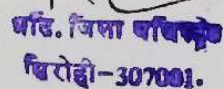 अति. जिला कलेक्टर
सिरोही-307001.